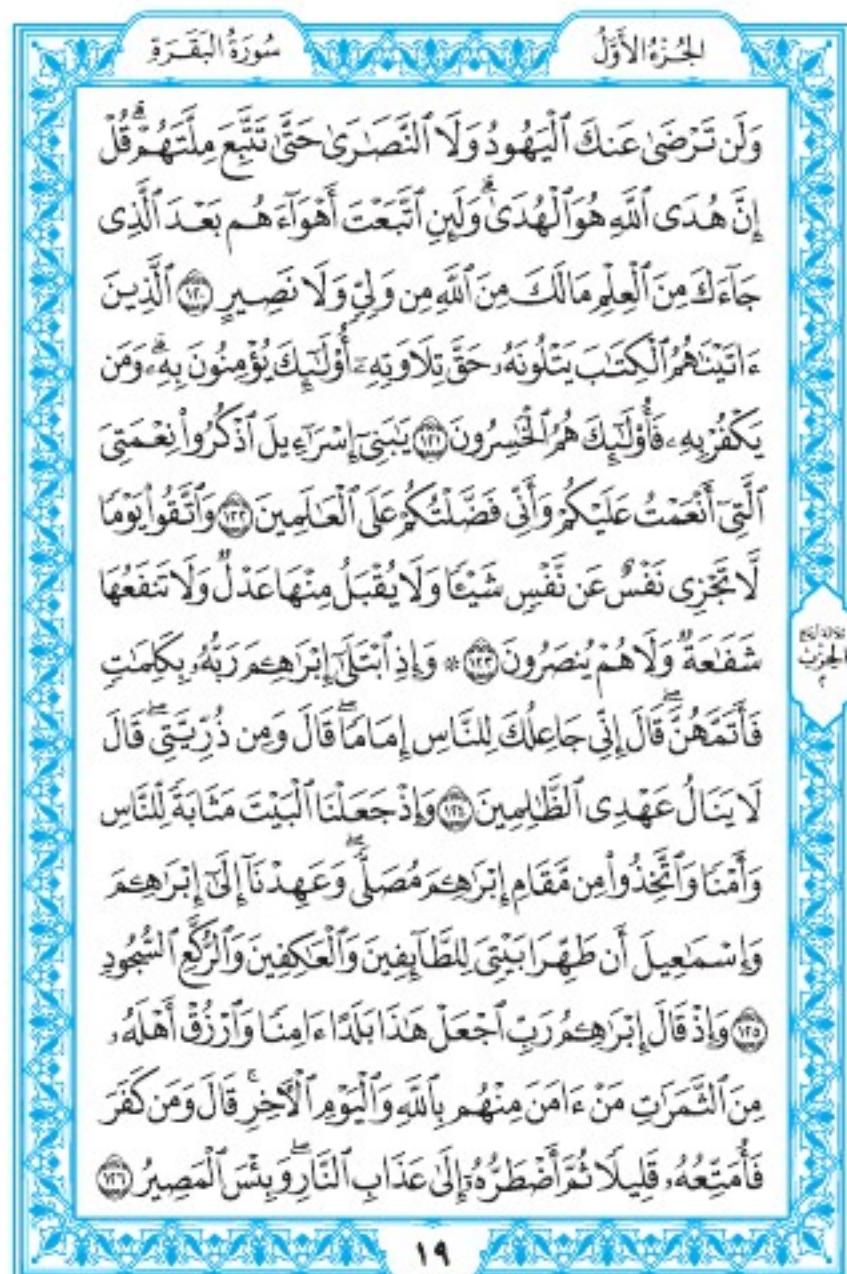 الجُزْءُ الأَوَّلُ
سُورَةُ البَقَرَةِ
وَلَن تَرْضَىٰ عَنكَ ٱلْيَهُودُ وَلَا ٱلنَّصَٰرَىٰ حَتَّىٰ تَتَّبِعَ مِلَّتَهُمْ ۗ قُلْ
إِنَّ هُدَى ٱللَّهِ هُوَ ٱلْهُدَىٰ ۗ وَلَئِنِ ٱتَّبَعْتَ أَهْوَآءَهُم بَعْدَ ٱلَّذِى
جَآءَكَ مِنَ ٱلْعِلْمِ مَا لَكَ مِنَ ٱللَّهِ مِن وَلِىٍّ وَلَا نَصِيرٍ ١٢٠ ٱلَّذِينَ
ءَاتَيْنَٰهُمُ ٱلْكِتَٰبَ يَتْلُونَهُۥ حَقَّ تِلَاوَتِهِۦٓ أُو۟لَٰٓئِكَ يُؤْمِنُونَ بِهِۦ ۗ وَمَن
يَكْفُرْ بِهِۦ فَأُو۟لَٰٓئِكَ هُمُ ٱلْخَٰسِرُونَ ١٢١ يَٰبَنِىٓ إِسْرَٰٓءِيلَ ٱذْكُرُوا۟ نِعْمَتِىَ
ٱلَّتِىٓ أَنْعَمْتُ عَلَيْكُمْ وَأَنِّى فَضَّلْتُكُمْ عَلَى ٱلْعَٰلَمِينَ ١٢٢ وَٱتَّقُوا۟ يَوْمًا
لَّا تَجْزِى نَفْسٌ عَن نَّفْسٍ شَيْـًٔا وَلَا يُقْبَلُ مِنْهَا عَدْلٌ وَلَا تَنفَعُهَا
شَفَٰعَةٌ وَلَا هُمْ يُنصَرُونَ ١٢٣ ۞ وَإِذِ ٱبْتَلَىٰٓ إِبْرَٰهِـۧمَ رَبُّهُۥ بِكَلِمَٰتٍ
فَأَتَمَّهُنَّ ۖ قَالَ إِنِّى جَاعِلُكَ لِلنَّاسِ إِمَامًا ۖ قَالَ وَمِن ذُرِّيَّتِى ۖ قَالَ
لَا يَنَالُ عَهْدِى ٱلظَّٰلِمِينَ ١٢٤ وَإِذْ جَعَلْنَا ٱلْبَيْتَ مَثَابَةً لِّلنَّاسِ
وَأَمْنًا وَٱتَّخِذُوا۟ مِن مَّقَامِ إِبْرَٰهِـۧمَ مُصَلًّى ۖ وَعَهِدْنَآ إِلَىٰٓ إِبْرَٰهِـۧمَ
وَإِسْمَٰعِيلَ أَن طَهِّرَا بَيْتِىَ لِلطَّآئِفِينَ وَٱلْعَٰكِفِينَ وَٱلرُّكَّعِ ٱلسُّجُودِ
١٢٥ وَإِذْ قَالَ إِبْرَٰهِـۧمُ رَبِّ ٱجْعَلْ هَٰذَا بَلَدًا ءَامِنًا وَٱرْزُقْ أَهْلَهُۥ
مِنَ ٱلثَّمَرَٰتِ مَنْ ءَامَنَ مِنْهُم بِٱللَّهِ وَٱلْيَوْمِ ٱلْءَاخِرِ ۖ قَالَ وَمَن كَفَرَ
فَأُمَتِّعُهُۥ قَلِيلًا ثُمَّ أَضْطَرُّهُۥٓ إِلَىٰ عَذَابِ ٱلنَّارِ ۖ وَبِئْسَ ٱلْمَصِيرُ ١٢٦
الحِزْب
٢
١٩